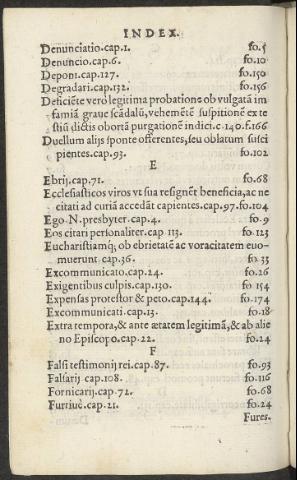 INDEX.
Denunciatio.cap.1. fo.5
Denuncio.cap.6. fo.10
Deponi.cap.127. fo.150
Degradari.cap.132. fo.156
Deficiẽte vero legitima probatione ob vulgatã im
famiã graue scãdalũ, vehemẽtẽ suspitionẽ ex te
stiũ dictis obortã purgationẽ indici.c 140.f.166
Duellum alijs sponte offerentes, seu oblatum susci
pientes.cap.93. fo.102
E
Ebrij.cap.71. fo.68
Ecclesiasticos viros vt sua resignẽt beneficia, ac ne
citati ad curiã accedãt capientes.cap.97.fo.104
Ego N. presbyter.cap.4. fo.9
Eos citari personaliter.cap 113. fo.123
Eucharistiamq́; ob ebrietatẽ ac voracitatem euo-
muerunt cap.36. fo.33
Excommunicato.cap.24. fo.26
Exigentibus culpis.cap.130. fo 154
Expensas protestor & peto.cap.144. fo.174
Excommunicati.cap.13. fo.18
Extra tempora, & ante ætatem legitimã, & ab alie
no Episcopo.cap.22. fo.24
F
Falsi testimonij rei.cap.87. fo.93
Falsarij cap.108. fo.116
Fornicarij.cap 72. fo.68
Furtiuè.cap.21. fo.24
Fures.